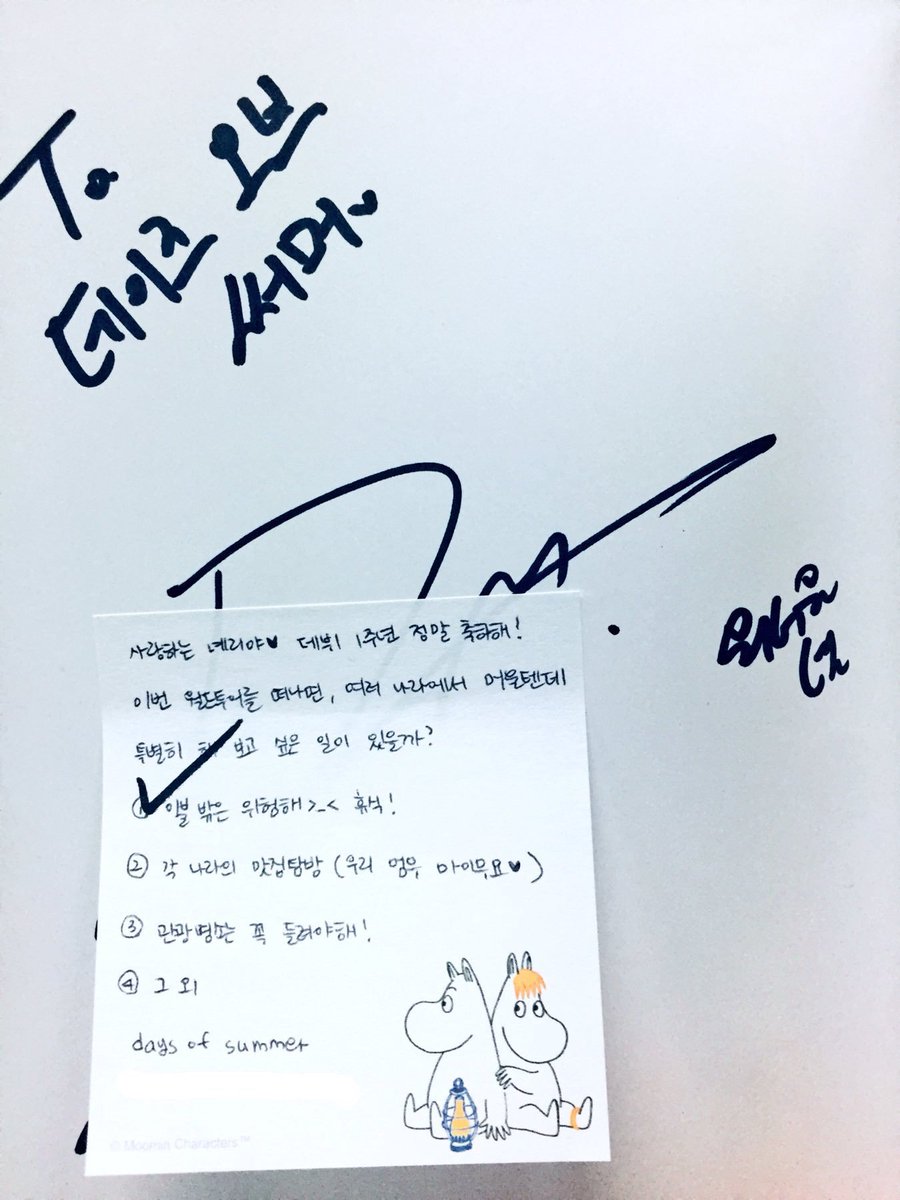 To
데이즈 오브
써머
사랑하는 녜리야♥ 데뷔 1주년 정말 축하해!
이번 월드투어를 떠나면, 여러 나라에서 머물텐데
특별히 보고 싶은 일이 있을까?
① 이불 밖은 위험해>_< 휴식!
② 각 나라의 맛집탐방 (우리 멈뮤 마이무요♥)
③ 관광명소는 꼭 들려야해!
④ 그 외
days of summer
© Moomin Characters™